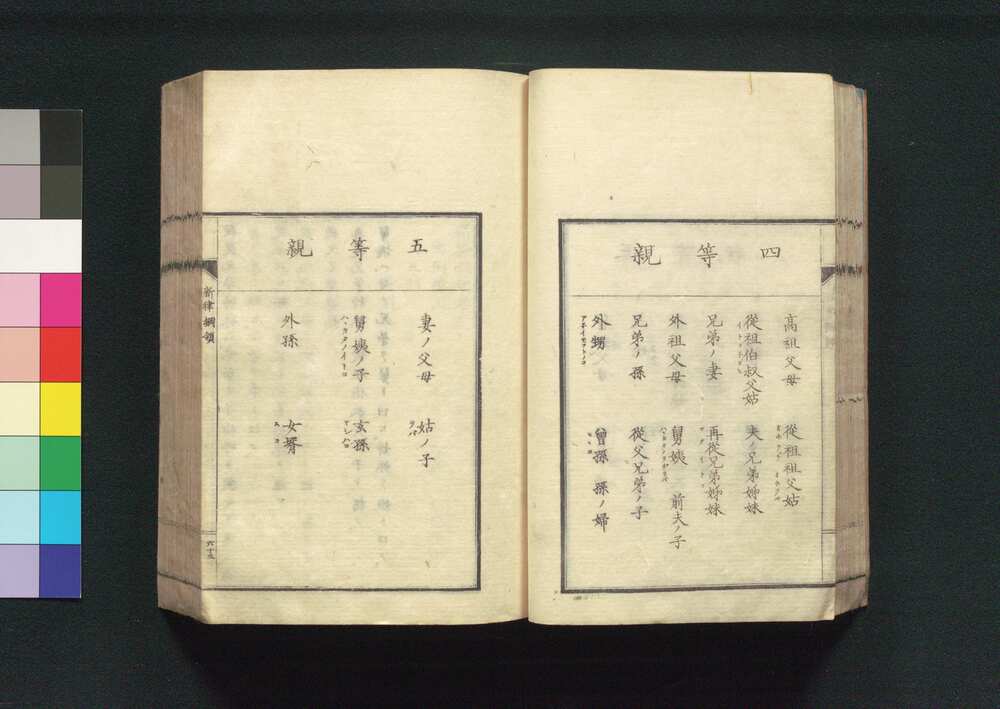 四等親
高祖父母 從祖祖父姑
從祖伯叔父姑 夫ノ兄弟姊妹
兄弟ノ妻 再從兄弟姊妹
外祖父母 舅姨 前夫ノ子
兄弟ノ孫 從父兄弟ノ子
外甥 曾孫 孫ノ婦
五等親
妻ノ父母 姑ノ子
舅姨ノ子 玄孫
外孫 女婿
新律綱領